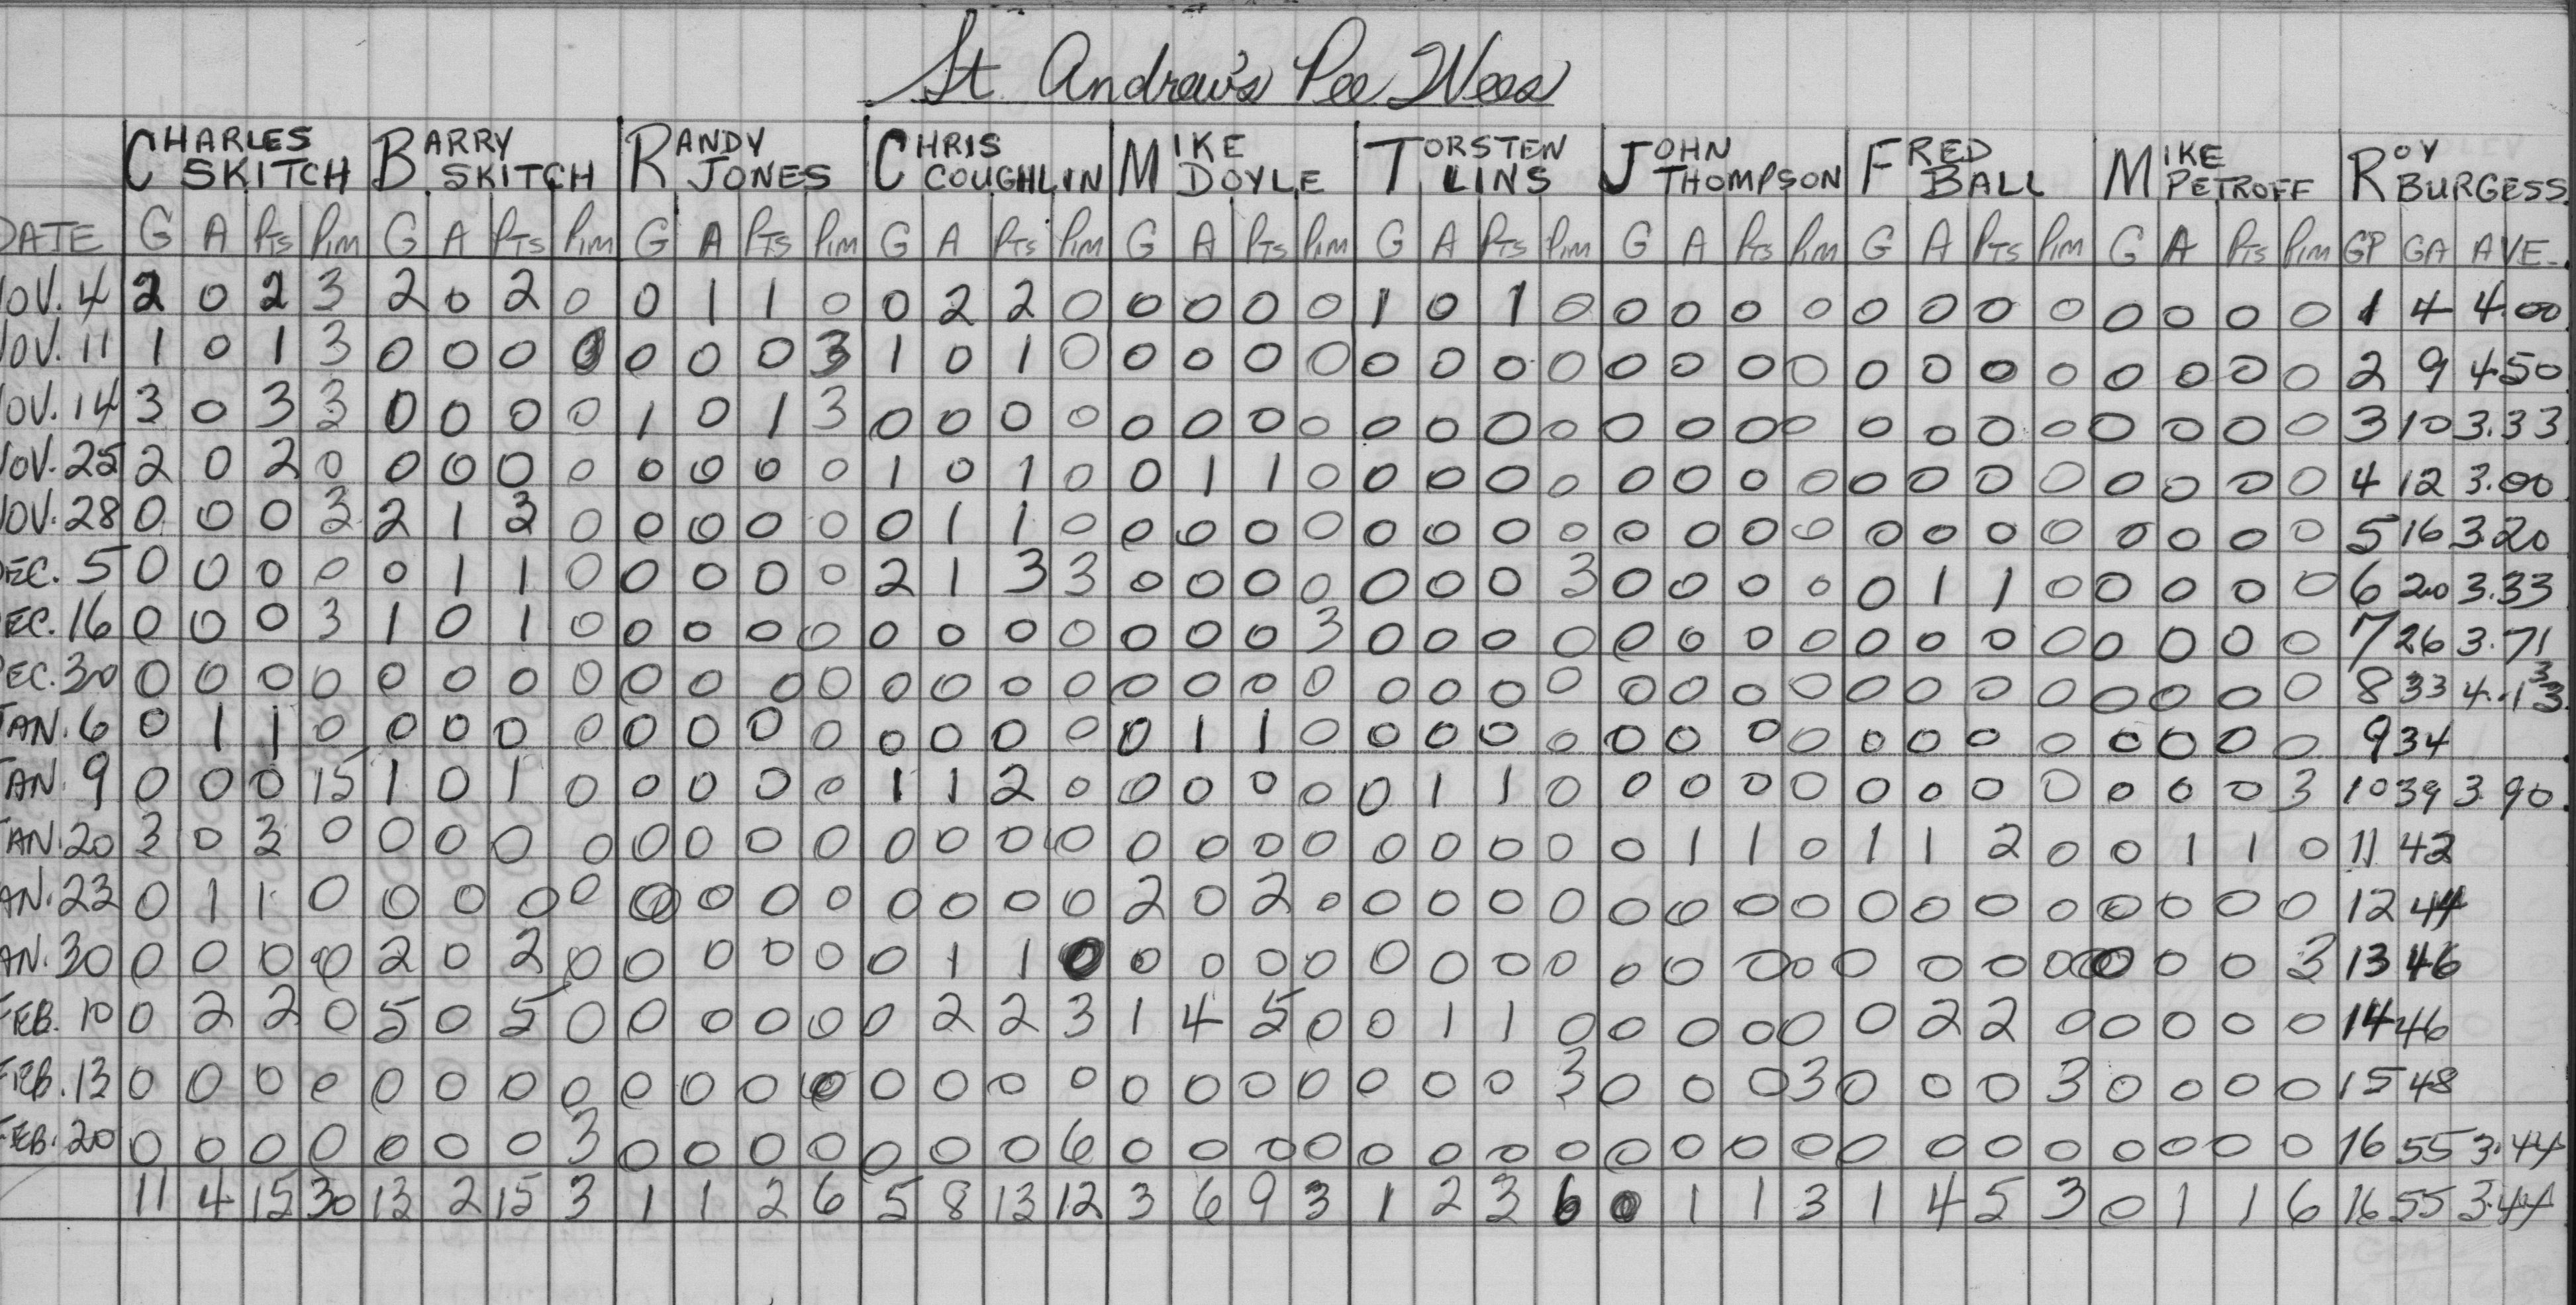 St Andrew's Pee Wees
CHARLES SKITCH BARRY SKITCH RANDY JONES CHRIS COUGHLIN MIKE DOYLE TORSTEN LINS JOHN THOMPSON FRED BALL MIKE PETROFF ROY BURGESS
DATE G A PTS PIM G A PTS PIM G A PTS PIM G A PTS PIM G A PTS PIM G A PTS PIM G A PTS PIM G A PTS PIM G A PTS PIM GP GA AVE.
OV. 4 2 0 2 3 2 0 2 0 0 1 1 0 0 2 2 0 0 0 0 0 1 0 1 0 0 0 0 0 0 0 0 0 0 0 0 0 1 4 4.00
OV. 11 1 0 1 3 0 0 0 0 0 0 0 3 1 0 1 0 0 0 0 0 0 0 0 0 0 0 0 0 0 0 0 0 0 0 0 0 2 9 4.50
OV. 14 3 0 3 3 0 0 0 0 1 0 1 3 0 0 0 0 0 0 0 0 0 0 0 0 0 0 0 0 0 0 0 0 0 0 0 0 3 10 3.33
OV. 25 2 0 2 0 0 0 0 0 0 0 0 0 1 0 1 0 0 1 1 0 0 0 0 0 0 0 0 0 0 0 0 0 0 0 0 0 4 12 3.00
OV. 28 0 0 0 3 2 1 3 0 0 0 0 0 0 1 1 0 0 0 0 0 0 0 0 0 0 0 0 0 0 0 0 0 0 0 0 0 5 16 3.20
EC. 5 0 0 0 0 0 1 1 0 0 0 0 0 2 1 3 3 0 0 0 0 0 0 0 3 0 0 0 0 0 1 1 0 0 0 0 0 6 20 3.33
EC. 16 0 0 0 3 1 0 1 0 0 0 0 0 0 0 0 0 0 0 0 3 0 0 0 0 0 0 0 0 0 0 0 0 0 0 0 0 7 26 3.71
EC. 30 0 0 0 0 0 0 0 0 0 0 0 0 0 0 0 0 0 0 0 0 0 0 0 0 0 0 0 0 0 0 0 0 0 0 0 0 8 33 4.13
AN. 6 0 1 1 0 0 0 0 0 0 0 0 0 0 0 0 0 0 1 1 0 0 0 0 0 0 0 0 0 0 0 0 0 0 0 0 0 9 34
AN. 9 0 0 0 15 1 0 1 0 0 0 0 0 1 1 2 0 0 0 0 0 0 1 1 0 0 0 0 0 0 0 0 0 0 0 0 3 10 39 3.90
AN. 20 3 0 3 0 0 0 0 0 0 0 0 0 0 0 0 0 0 0 0 0 0 0 0 0 0 1 1 0 1 1 2 0 0 1 1 0 11 42
AN. 23 0 1 1 0 0 0 0 0 0 0 0 0 0 0 0 0 2 0 2 0 0 0 0 0 0 0 0 0 0 0 0 0 0 0 0 0 12 44
AN. 30 0 0 0 0 2 0 2 0 0 0 0 0 0 1 1 0 0 0 0 0 0 0 0 0 0 0 0 0 0 0 0 0 0 0 0 3 13 46
FEB. 10 0 2 2 0 5 0 5 0 0 0 0 0 0 2 2 3 1 4 5 0 0 1 1 0 0 0 0 0 0 2 2 0 0 0 0 0 14 46
FEB. 13 0 0 0 0 0 0 0 0 0 0 0 0 0 0 0 0 0 0 0 0 0 0 0 3 0 0 0 3 0 0 0 3 0 0 0 0 15 48
FEB. 20 0 0 0 0 0 0 0 3 0 0 0 0 0 0 0 6 0 0 0 0 0 0 0 0 0 0 0 0 0 0 0 0 0 0 0 0 16 55 3.44
11 4 15 30 13 2 15 3 1 1 2 6 5 8 13 12 3 6 9 3 1 2 3 6 0 1 1 3 1 4 5 3 0 1 1 6 16 55 3.44